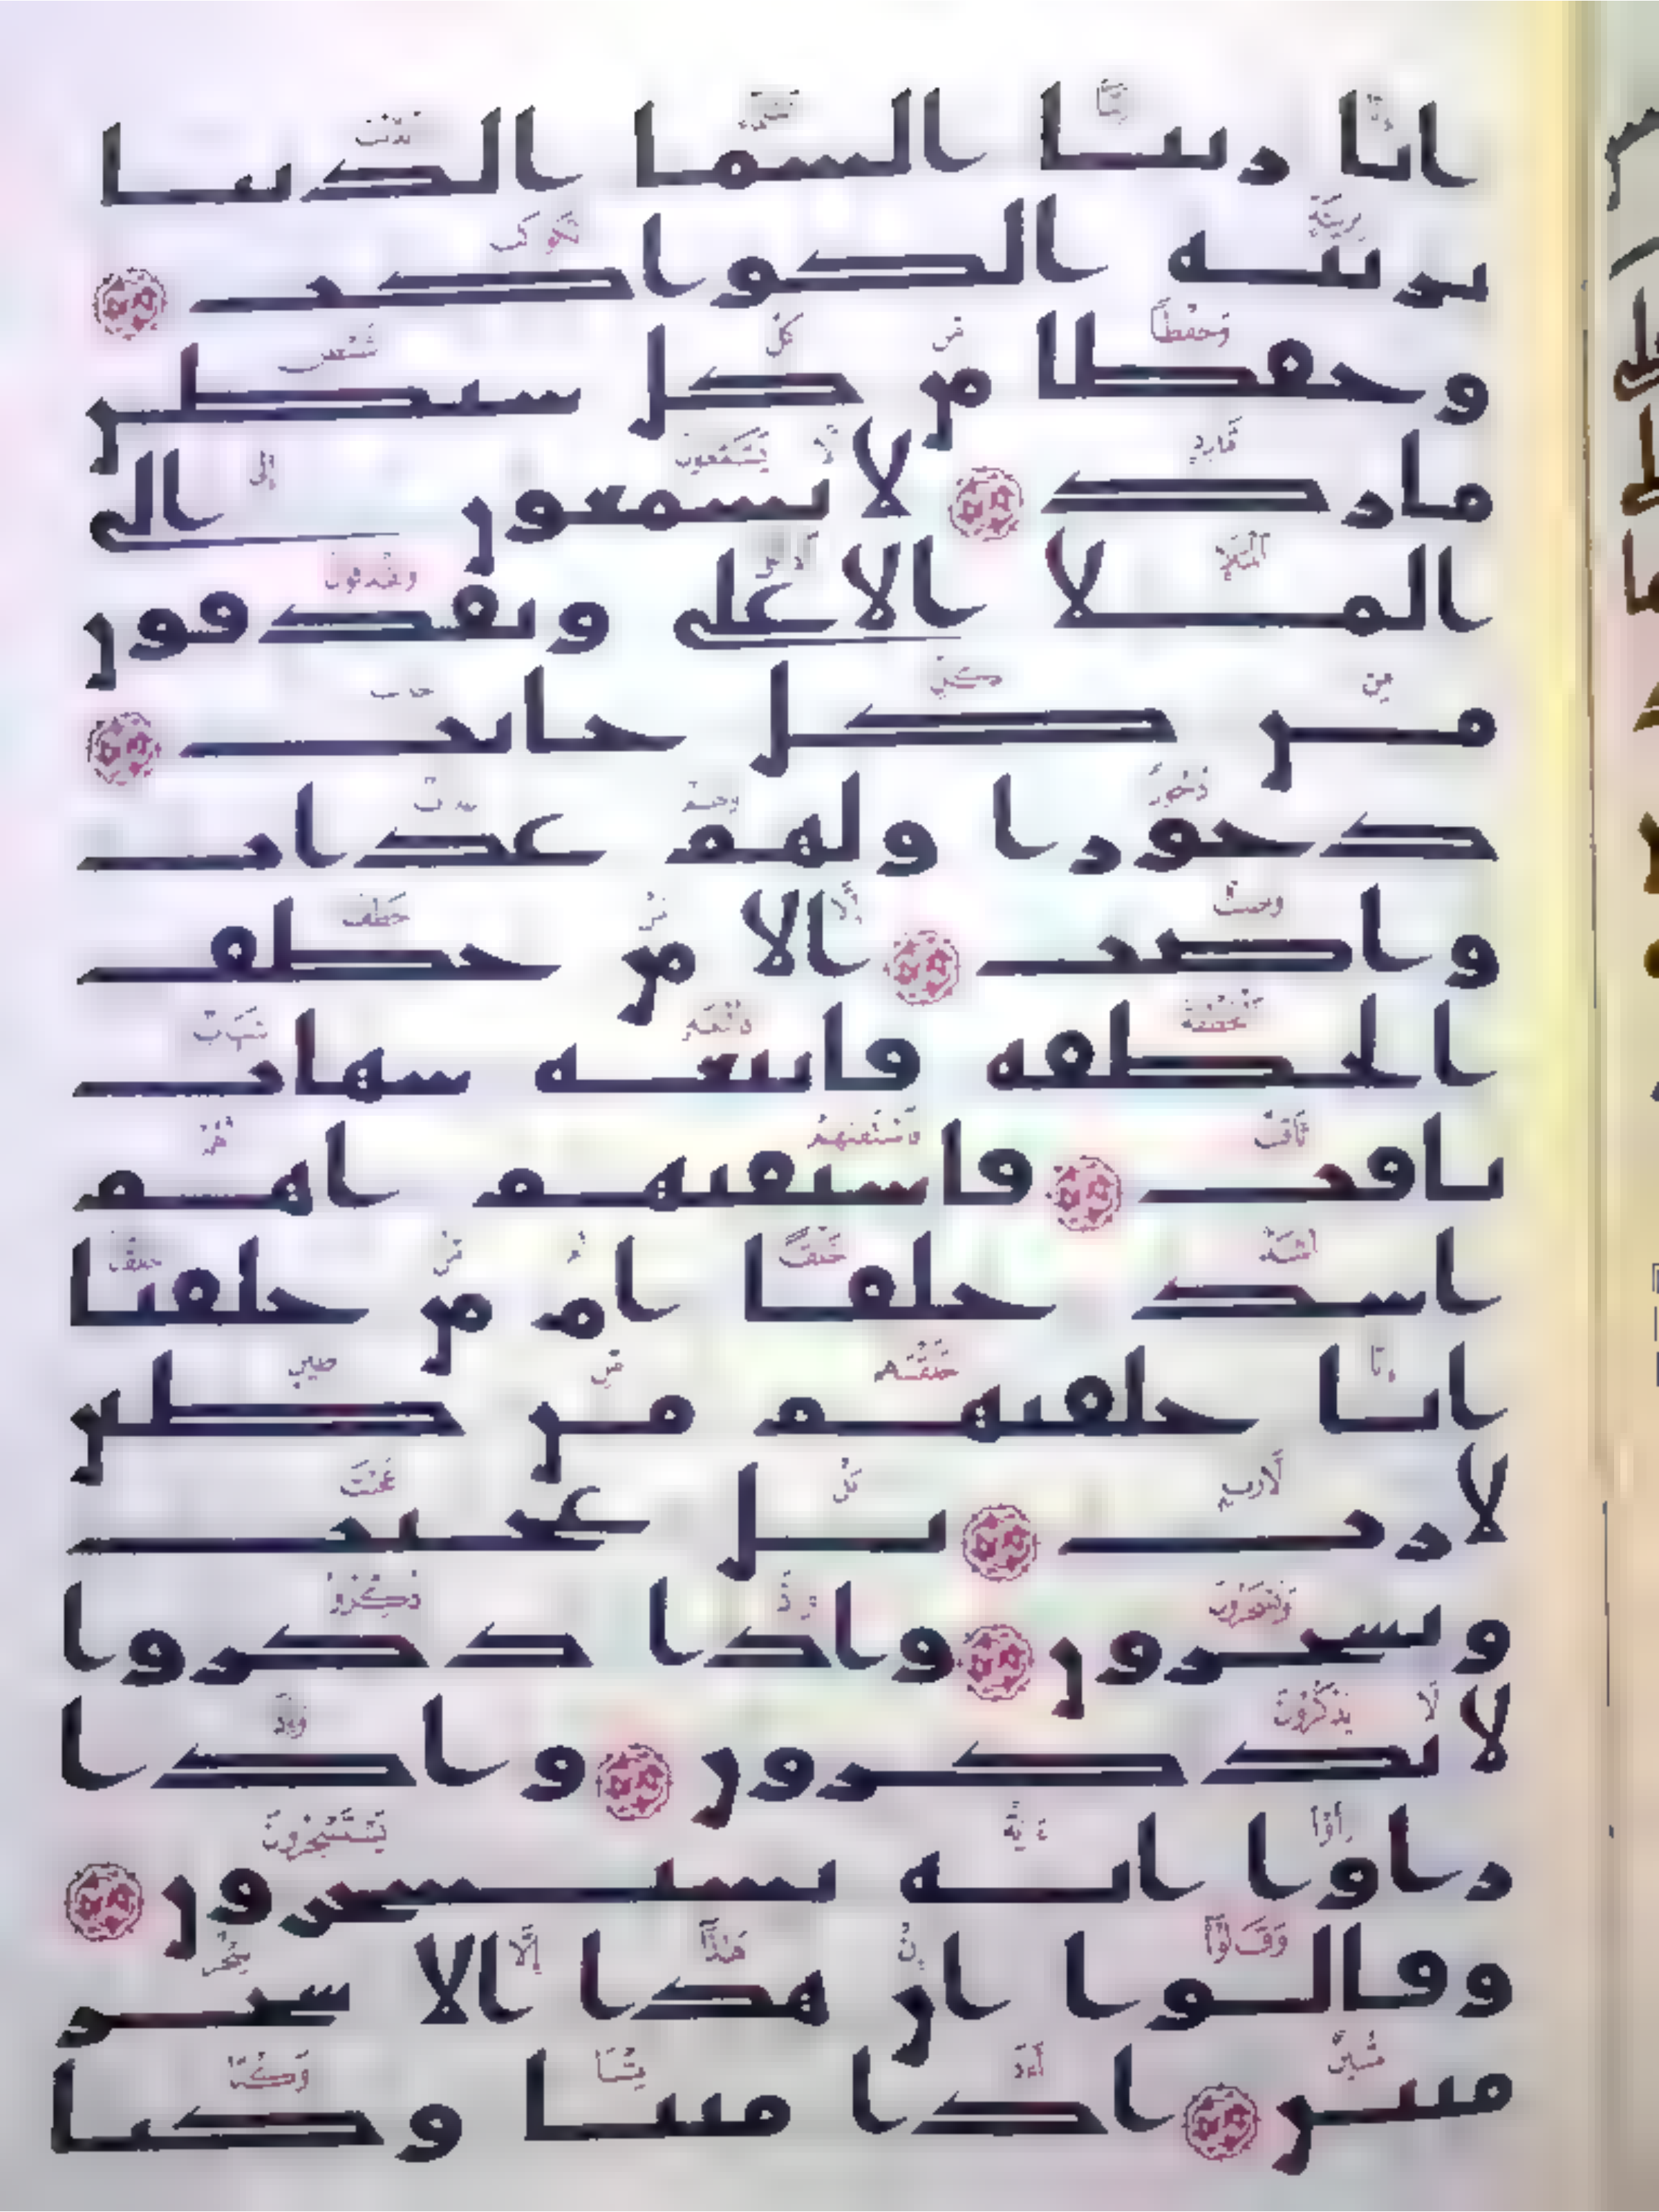 انا زينا السما الدنيا
بزينه الكواكب
وحفظا من كل شيطن
مارد لا يسمعون الى
الملا الاعلى ويقذفون
من كل جانب
دحورا ولهم عذاب
واصب الا من خطف
الخطفه فاتبعه شهاب
ثاقب فاستفتهم اهم
اشد خلقا ام من خلقنا
انا خلقنهم من طين
لازب بل عجبت
ويسخرون واذا ذكروا
لا يذكرون واذا
راوا ايه يستسخرون
وقالوا ان هذا الا سحر
مبين اذا متنا وكنا